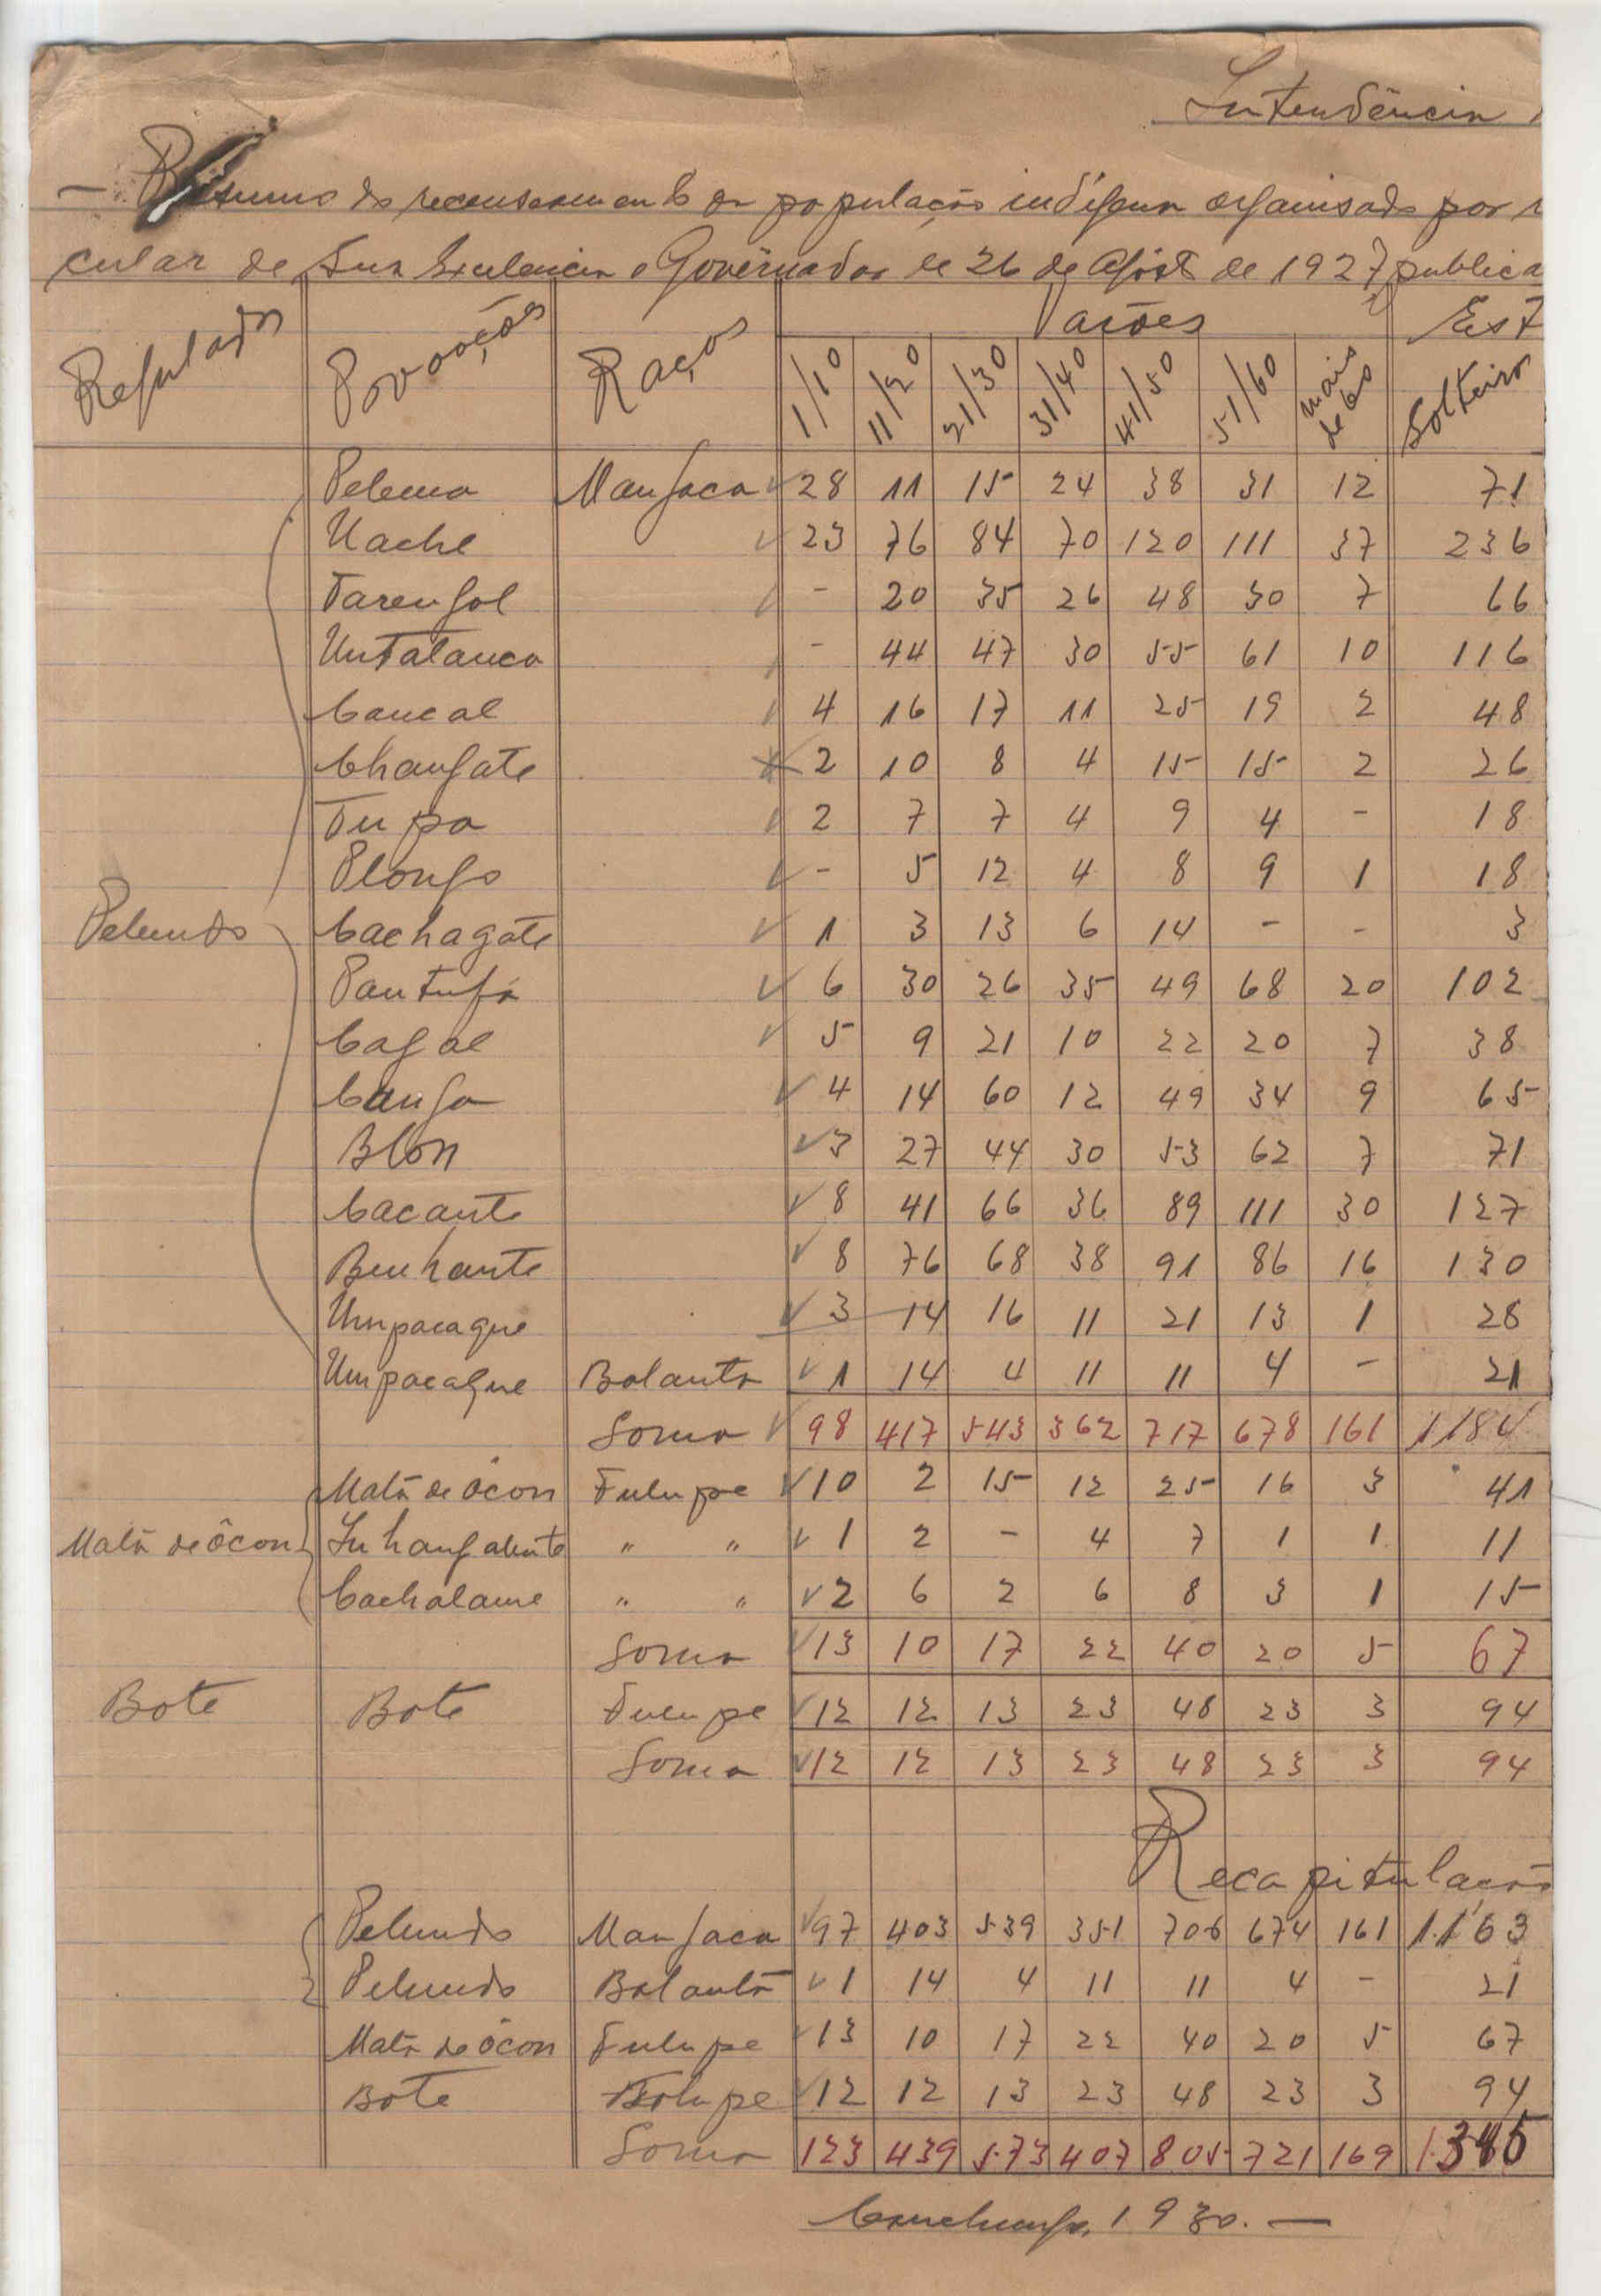 Intendência
— Resumo do recenseamento da população indígena organisado por
cular de Sua Excelencia o Governador de 26 de Agosto de 1927 publica
Regulados Povoações Raças Varões Est
1/10 11/20 21/30 31/40 41/50 51/60 mais de 60 Solteiros
Pelema Manjaca 28 11 15 24 38 31 12 71
Uache 23 76 84 70 120 111 37 236
Tarengol - 20 35 26 48 30 7 66
Untatanca - 44 47 30 55 61 10 116
Caucal 4 16 17 11 25 19 2 48
Changate 2 10 8 4 15 15 2 26
Tupa 2 7 7 4 9 4 - 18
Plongo - 5 12 4 8 9 1 18
Pelundo Cachagate 1 3 13 6 14 - - 3
Pantufa 6 30 26 35 49 68 20 102
Cagal 5 9 21 10 22 20 7 38
Canja 4 14 60 12 49 34 9 65
Blon 3 27 44 30 53 62 7 71
Cacante 8 41 66 36 89 111 30 127
Benhante 8 76 68 38 91 86 16 130
Umpacague 3 14 16 11 21 13 1 28
Umpacague Balanta 1 14 4 11 11 4 - 21
Soma 98 417 543 362 717 678 161 1184
Mata de Ôcon Fulupe 10 2 15 12 25 16 3 41
Mata de ôcon " " 1 2 - 4 7 1 1 11
Cachalame " " 2 6 2 6 8 3 1 15
Soma 13 10 17 22 40 20 5 67
Bote Bote Fulupe 12 12 13 23 48 23 3 94
Soma 12 12 13 23 48 23 3 94
Recapitulação
Pelundo Manjaca 97 403 539 351 706 674 161 1.163
Pelundo Balanta 1 14 4 11 11 4 - 21
Mata de Ôcon Fulupe 13 10 17 22 40 20 5 67
Bote Folupe 12 12 13 23 48 23 3 94
Soma 123 439 573 407 805 721 169 1.345
Canchungo, 1930. —